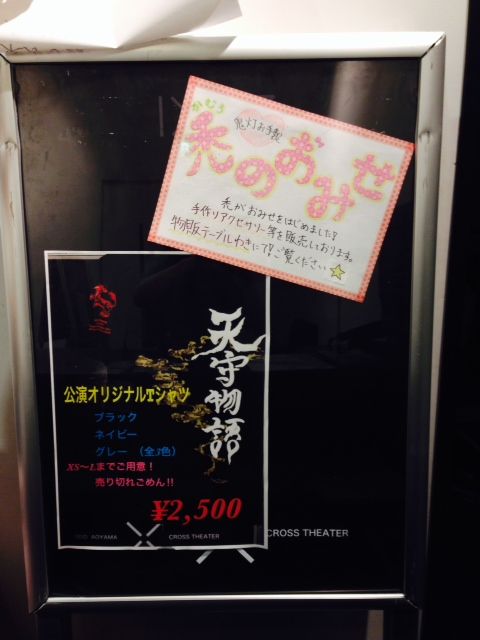 かむろ
鬼灯お手製
禿のおみせ
禿がおみせをはじめました!
手作りアクセサリー等を販売しております。
物販テーブルわきにて!ご覧ください☆
天守物語
公演オリジナルTシャツ
ブラック
ネイビー
グレー (全3色)
XS〜Lまでご用意!
売り切れごめん!!
¥2,500
AOYAMA
CROSS THEATER
CROSS THEATER